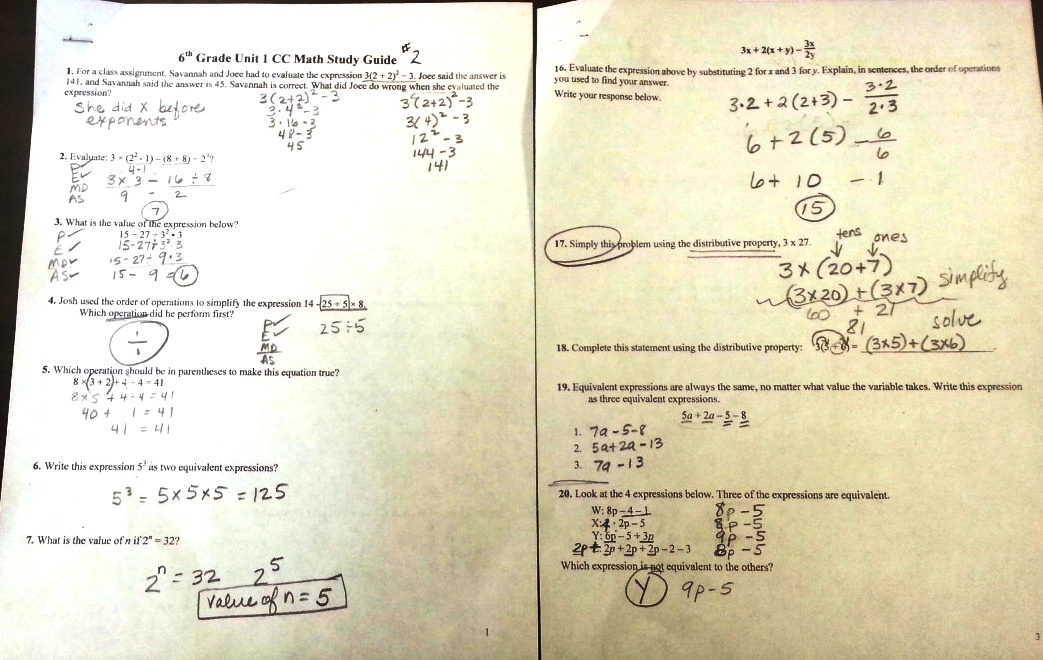 6th Grade Unit 1 CC Math Study Guide #2
1. For a class assignment, Savannah and Joee had to evaluate the expression 3(2 + 2)² – 3. Joee said the answer is
141, and Savannah said the answer is 45. Savannah is correct. What did Joee do wrong when she evaluated the
expression?
She did X before
exponents
3(2+2)²-3
3·4²-3
3·16-3
48-3
45
3(2+2)²-3
3(4)²-3
12²-3
144-3
141
2. Evaluate: 3 × (2² - 1) – (8 + 8) ÷ 2³?
4-1
P✓
E✓
MD
AS
3 x 3 - 16 ÷ 8
9 - 2
7
3. What is the value of the expression below?
15 – 27 ÷ 3² • 3
P✓
E✓
MD✓
AS✓
15-27÷3²·3
15-27÷9·3
15- 9 = 6
4. Josh used the order of operations to simplify the expression 14 - 25 ÷ 5 × 8.
Which operation did he perform first?
÷
P✓
E✓
MD
AS
25÷5
5. Which operation should be in parentheses to make this equation true?
8 × (3 + 2) + 4 ÷ 4 = 41
8×5 + 4÷4 = 41
40 + 1 = 41
41 = 41
6. Write this expression 5³ as two equivalent expressions?
5³ = 5x5x5 = 125
7. What is the value of n if 2ⁿ = 32?
2ⁿ = 32 2⁵
value of n = 5
1
3x + 2(x + y) – 3x/2y
16. Evaluate the expression above by substituting 2 for x and 3 for y. Explain, in sentences, the order of operations
you used to find your answer.
Write your response below.
3·2+2(2+3) - 3·2/2·3
6+2(5) - 6/6
6+ 10 - 1
15
17. Simply this problem using the distributive property, 3 x 27.
tens ones
3×(20+7)
(3x20)+(3x7) simplify
60 + 21
81 solve
18. Complete this statement using the distributive property: = (3x5)+(3x6)
19. Equivalent expressions are always the same, no matter what value the variable takes. Write this expression
as three equivalent expressions.
5a + 2a – 5 – 8
1. 7a-5-8
2. 5a+2a-13
3. 7a-13
20. Look at the 4 expressions below. Three of the expressions are equivalent.
W: 8p – 4 – 1 8p-5
X: 4 · 2p – 5 8p-5
Y: 6p – 5 + 3p 9p-5
2p + 2p + 2p + 2p – 2 – 3 8p-5
Which expression is not equivalent to the others?
Y 9p-5
3